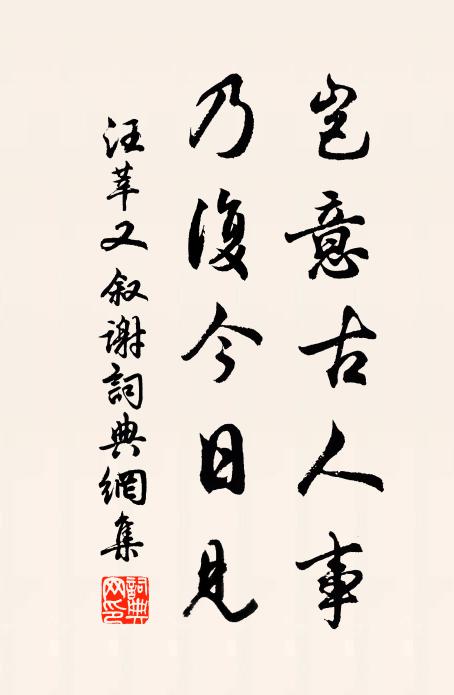 豈意古人事
乃復今日見
汪莘又叙謝詞典網集
詞典網印